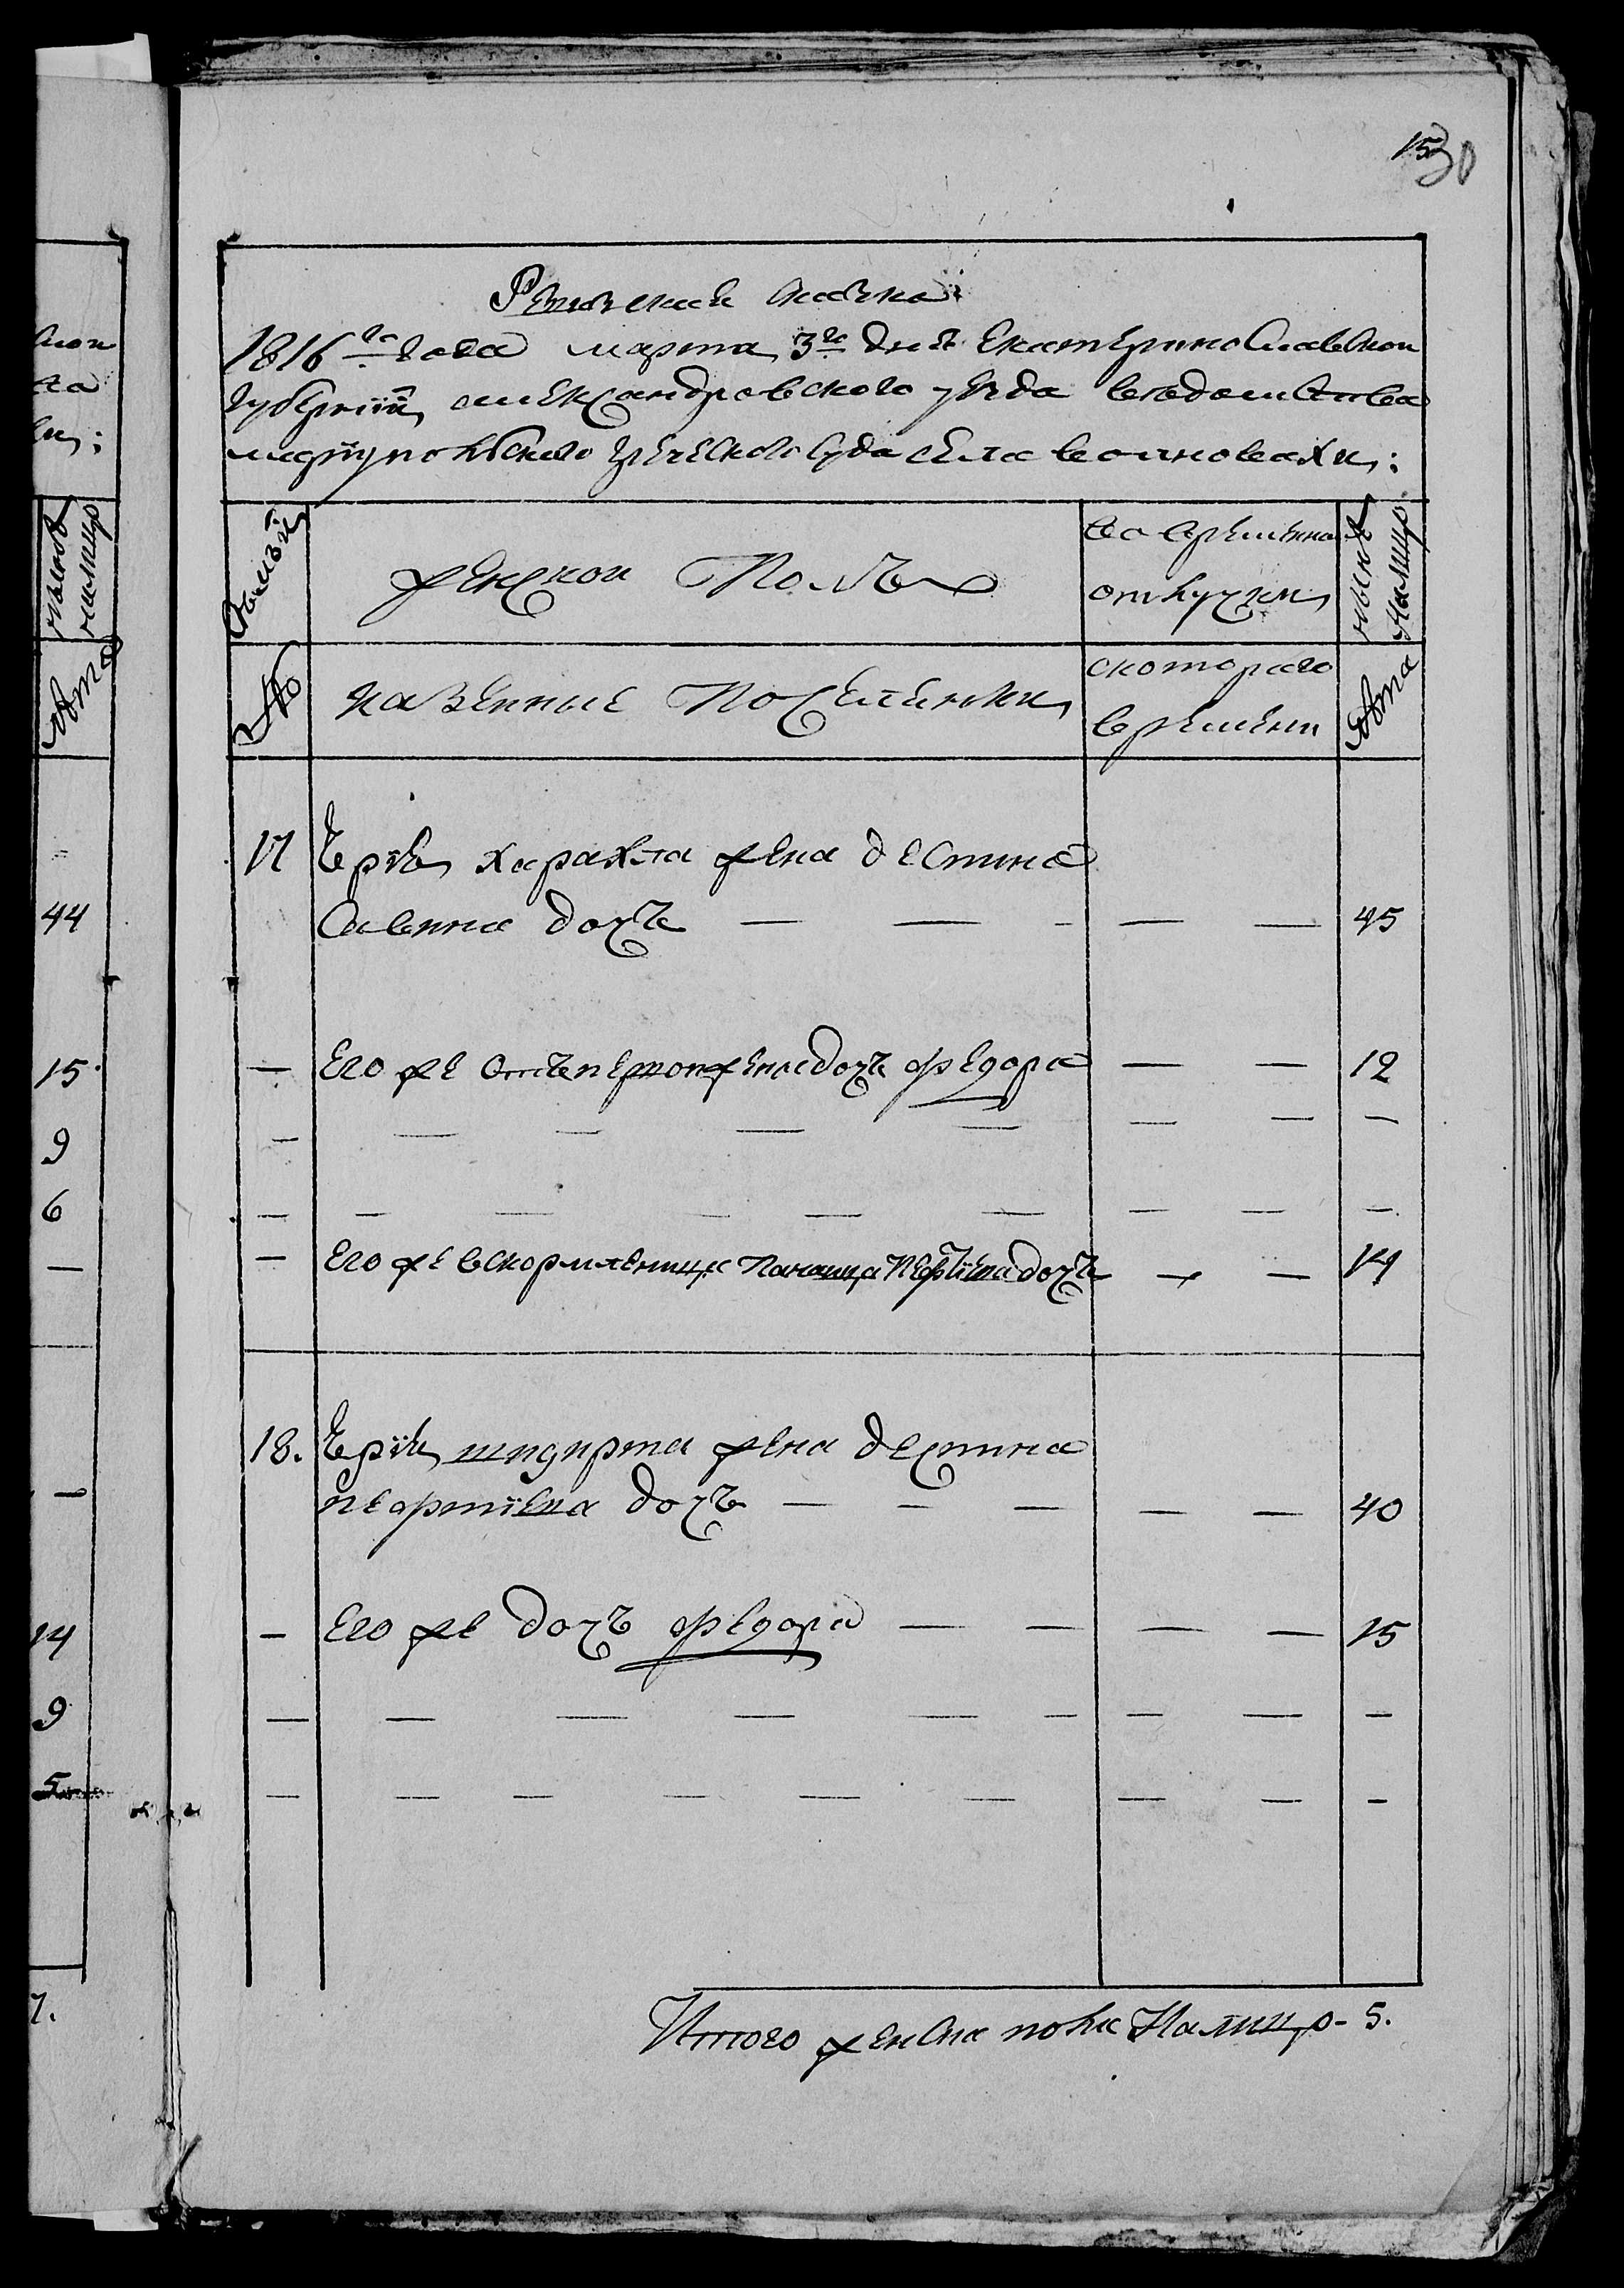 15
30
Ревизская сказка
1816го года марта 3го дня Екатеринославской
губернии александровского уезда ведомства
мариупольского греческого суда села волновахи:
семьи
женской Полъ
во временно
отлучки
ныне налицо
№
казенные Поселянки
с которого
времени
лета
17 Юрия харахла жена деспина
Савина дочь — — — — — 45
— Его же отъ первой жены дочь федора — — 12
— — — — — — — —
— — — — — — — — —
— Его же вскормленница Панаица дочь — — 14
18. Юрия шидирта жена деспина
дочь — — — — — 40
— Его же дочь федора — — — — 15
— — — — — — — — —
— — — — — — — — —
Итого женска пола Налицо - 5.
44
15
9
6
—
—
14
9
5
7.